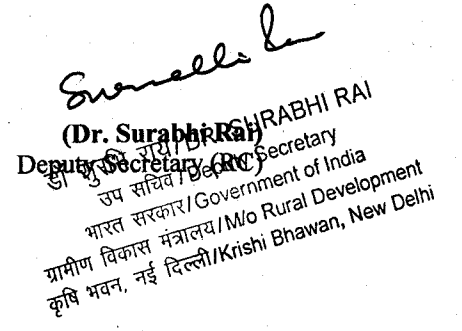 (Dr. Surabhi Rai)
Deputy Secretary (RC)
डॉ सुरभि राय/DR. SURABHI RAI
उप सचिव/Deputy Secretary
भारत सरकार/Government of India
ग्रामीण विकास मंत्रालय/M/o Rural Development
कृषि भवन, नई दिल्ली/Krishi Bhawan, New Delhi